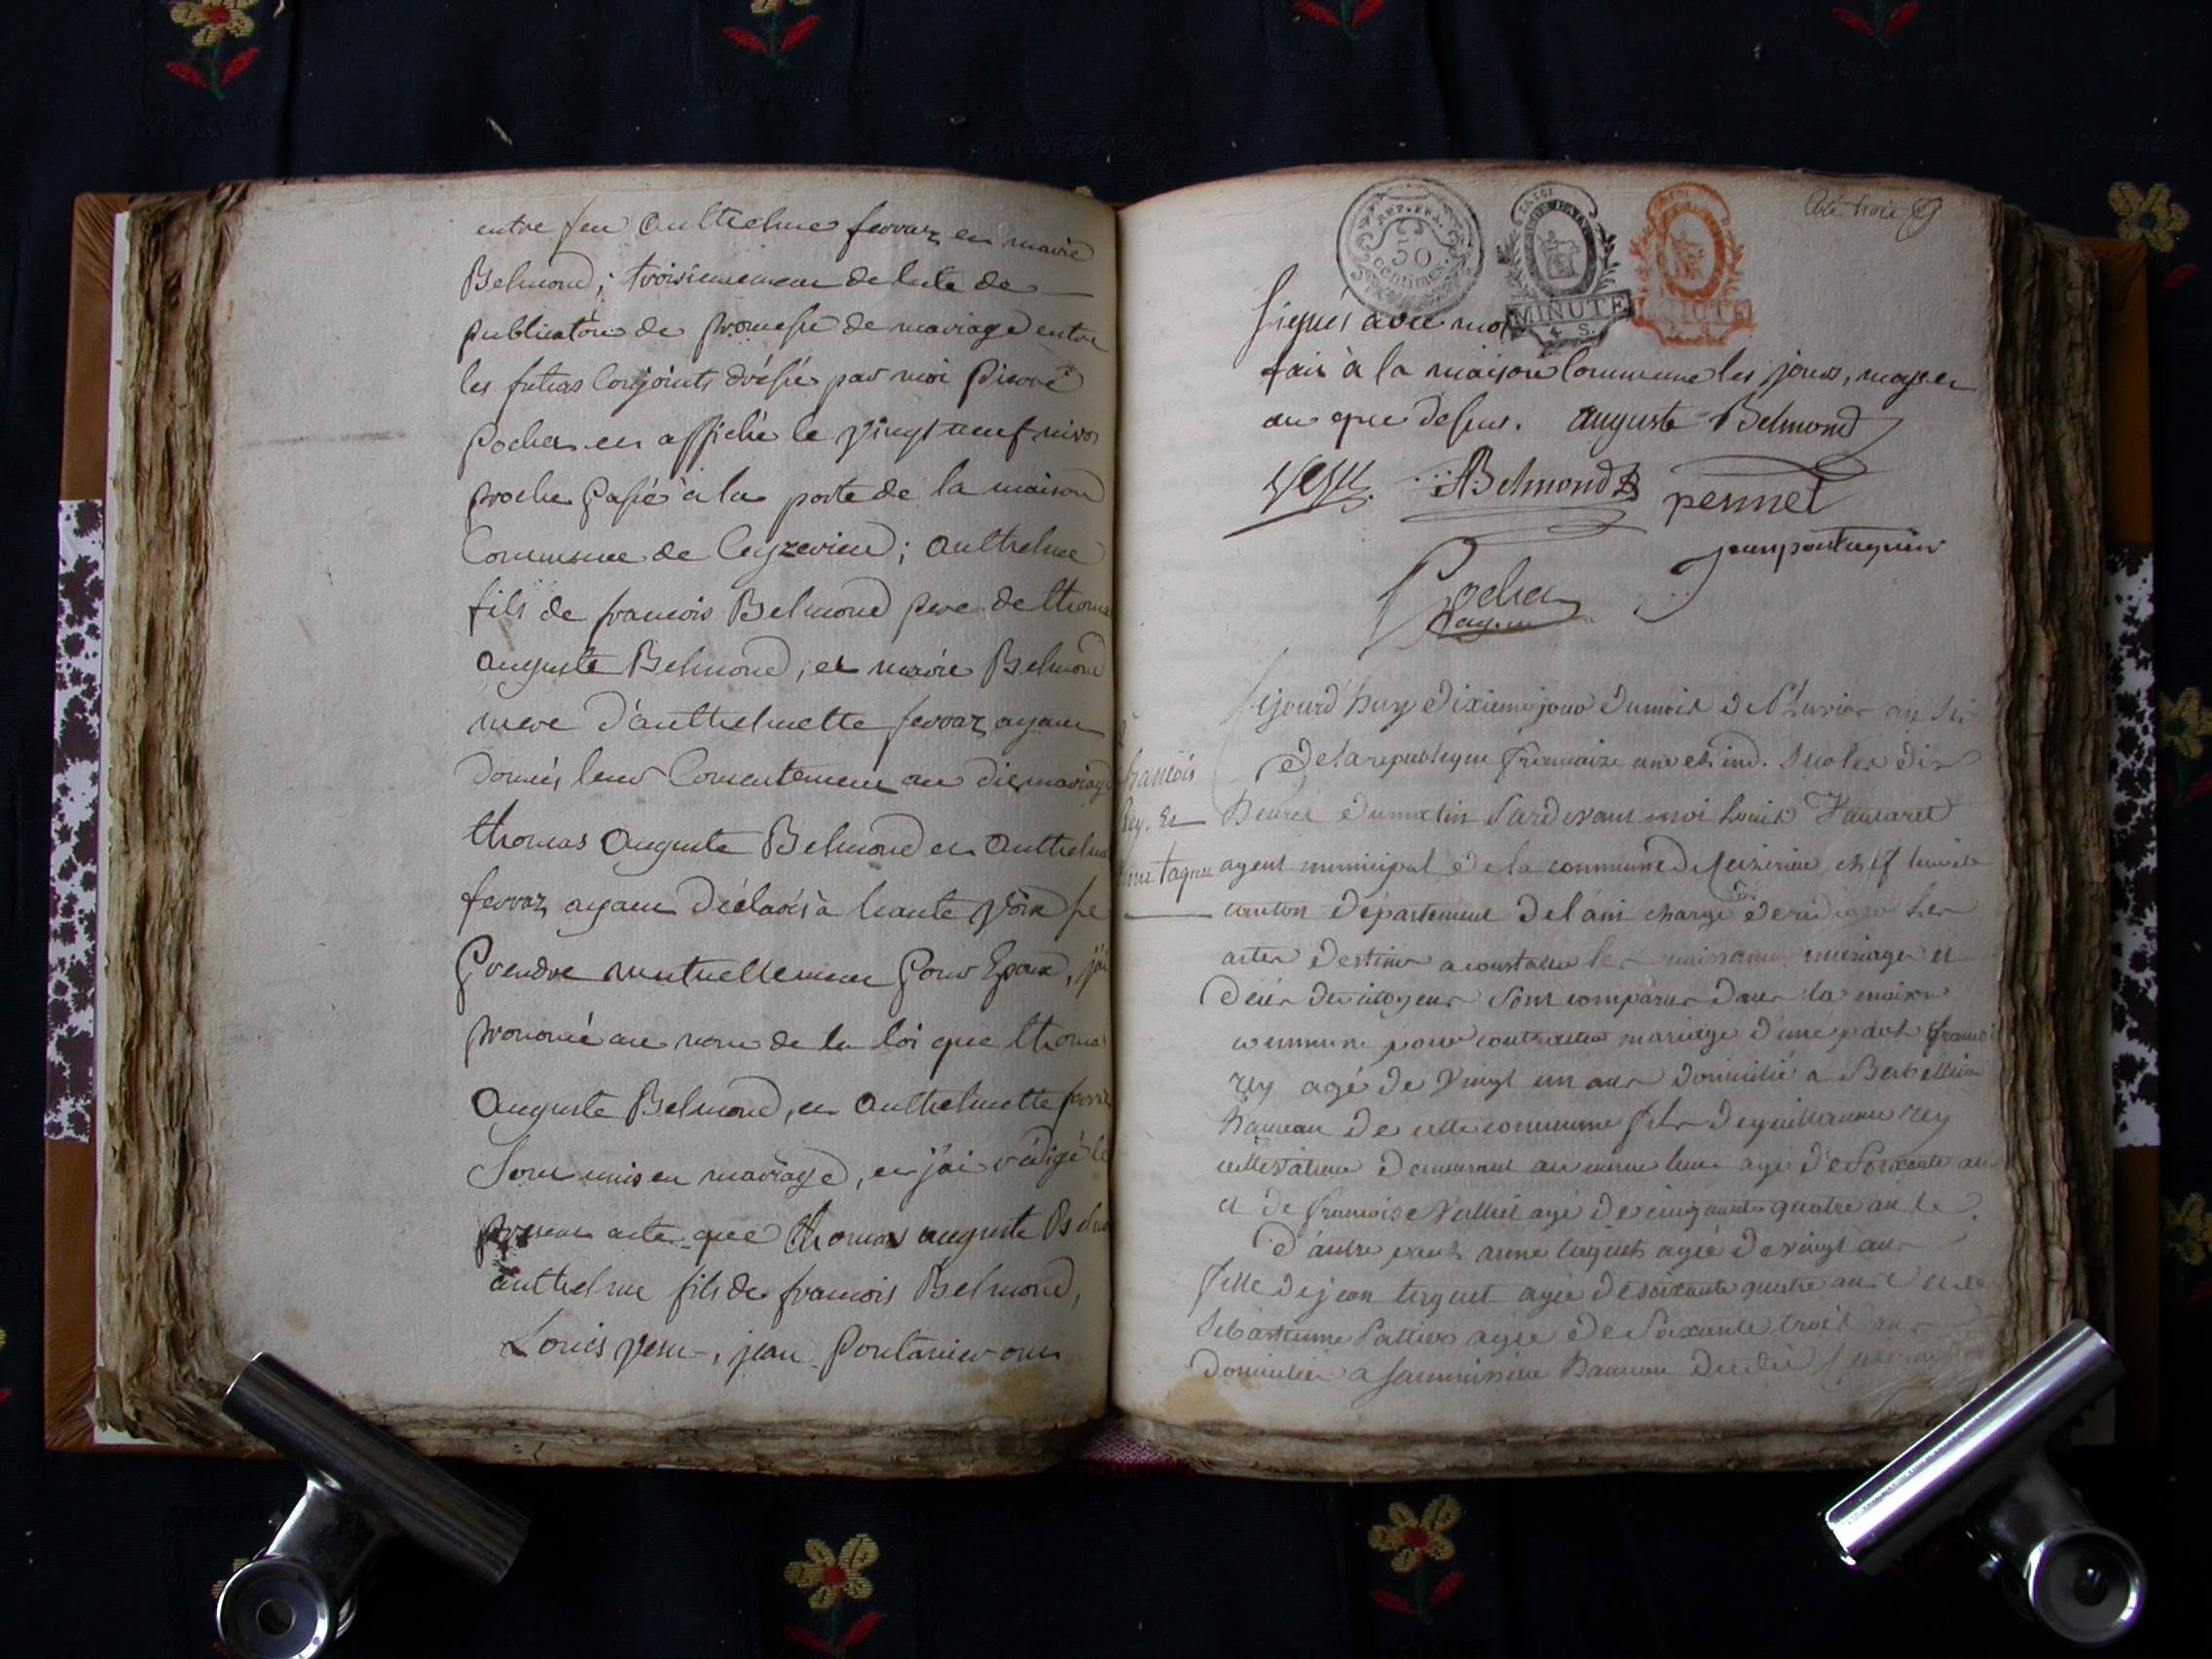 entre feu Anthelme ferraz et marie
Belmond; troisiemement de lacte de
publication de promesse de mariage entre
les futurs Conjoints dréssé par moi Pierre
Pochet et affiché le vingt neuf nivos
proche Passé à la porte de la maison
Commune de Ceyzerieu; Anthelme
fils de francois Belmond pere de thomas
auguste Belmond, et marie Belmond
mere d'anthelmette ferraz ayant
donnés leur Consentement au dit mariage
thomas Auguste Belmond et Anthelme
ferraz ayant déclarés à haute voix se
Prendre mutuellement Pour Epoux, j'ai
prononcé au nom de la loi que thomas
Auguste Belmond, et Anthelmette ferraz
Sont unis en mariage, et j'ai rédigé le
present acte que thomas auguste Belmo
anthelme fils de francois Belmond,
Louis vesu, jean Pontanier ont
REP. FRA.
50
centimes
MINUTE
4. S.
MINUTE
Signés avec moi
fait à la maison Commune les jours, moys et
an que dessus. auguste Belmond
vesu. ABelmond pernet
jean pontagnier
Pochet
agent
francois
Rey. Et
anne taquet
jourd'huy dixieme jour du mois de Pluviose an six
de la republique francaize une et ind. sur les dix
heures du matin Pardevant moi Louis
agent municipal de la commune de chef lieu de
canton département de l'ain chargé de rediger les
actes destiné a constater les naissance mariage et
décès des citoyens Sont comparus dans la maison
commune pour contracter mariage d'une part francoi
rey agé de vingt un ans domicilié a
hameau de cette commune fils de guillaume rey
cultivateur demeurant au meme lieu agé de Soixante ans
et de francoise agé de cinquante quatre an
d'autre part anne taquet agée de vingt ans
fille de jean taquet agée de soixante quatre ans et de
agée de Soixante trois ans
domicilié a hameau